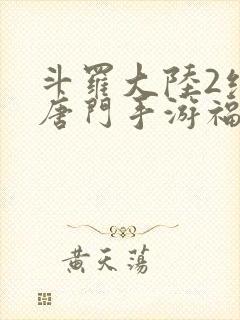 斗羅大陸2絕
唐門手游福
黃天蕩